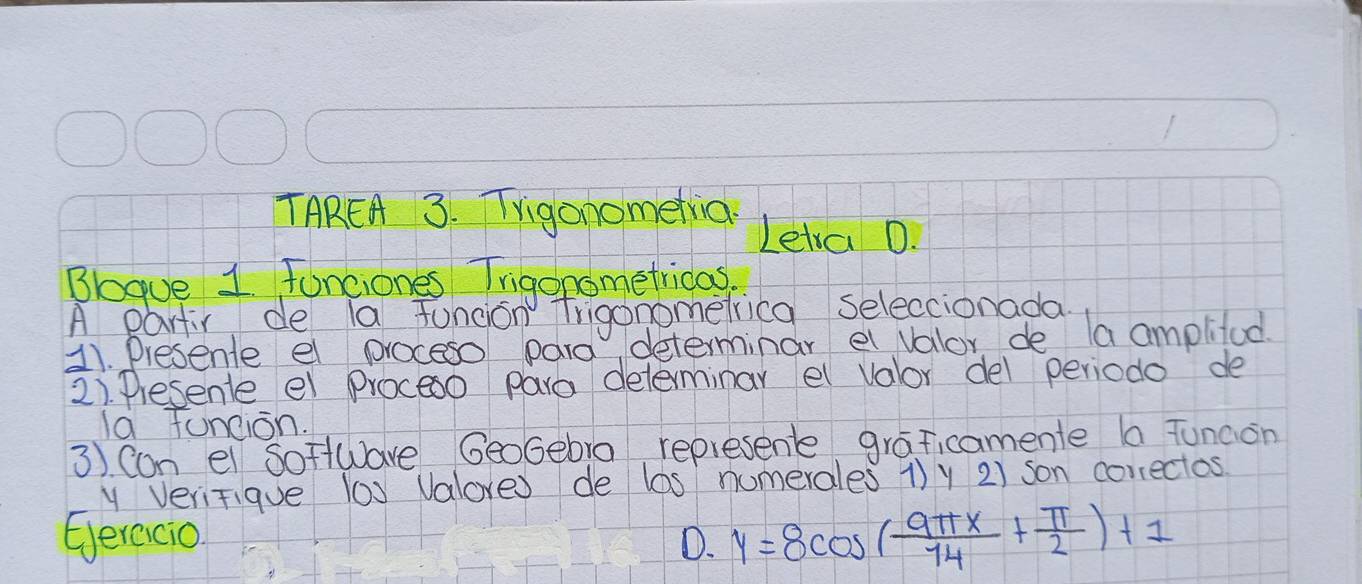 TAREA 3. Trigonometria.
Letra D.
Bloque 1. Funciones Trigonometricas.
A partir de la función Trigonométrica seleccionada.
1). Presente el proceso para determinar el valor de la amplitud.
2). Presente el proceso para determinar el valor del periodo de
la función.
3). Con el software GeoGebra represente gráficamente la función
y verifique los valores de los numerales 1) y 2) son correctos
Ejercicio.
D. y = 8cos(9πx/14 + π/2) + 1